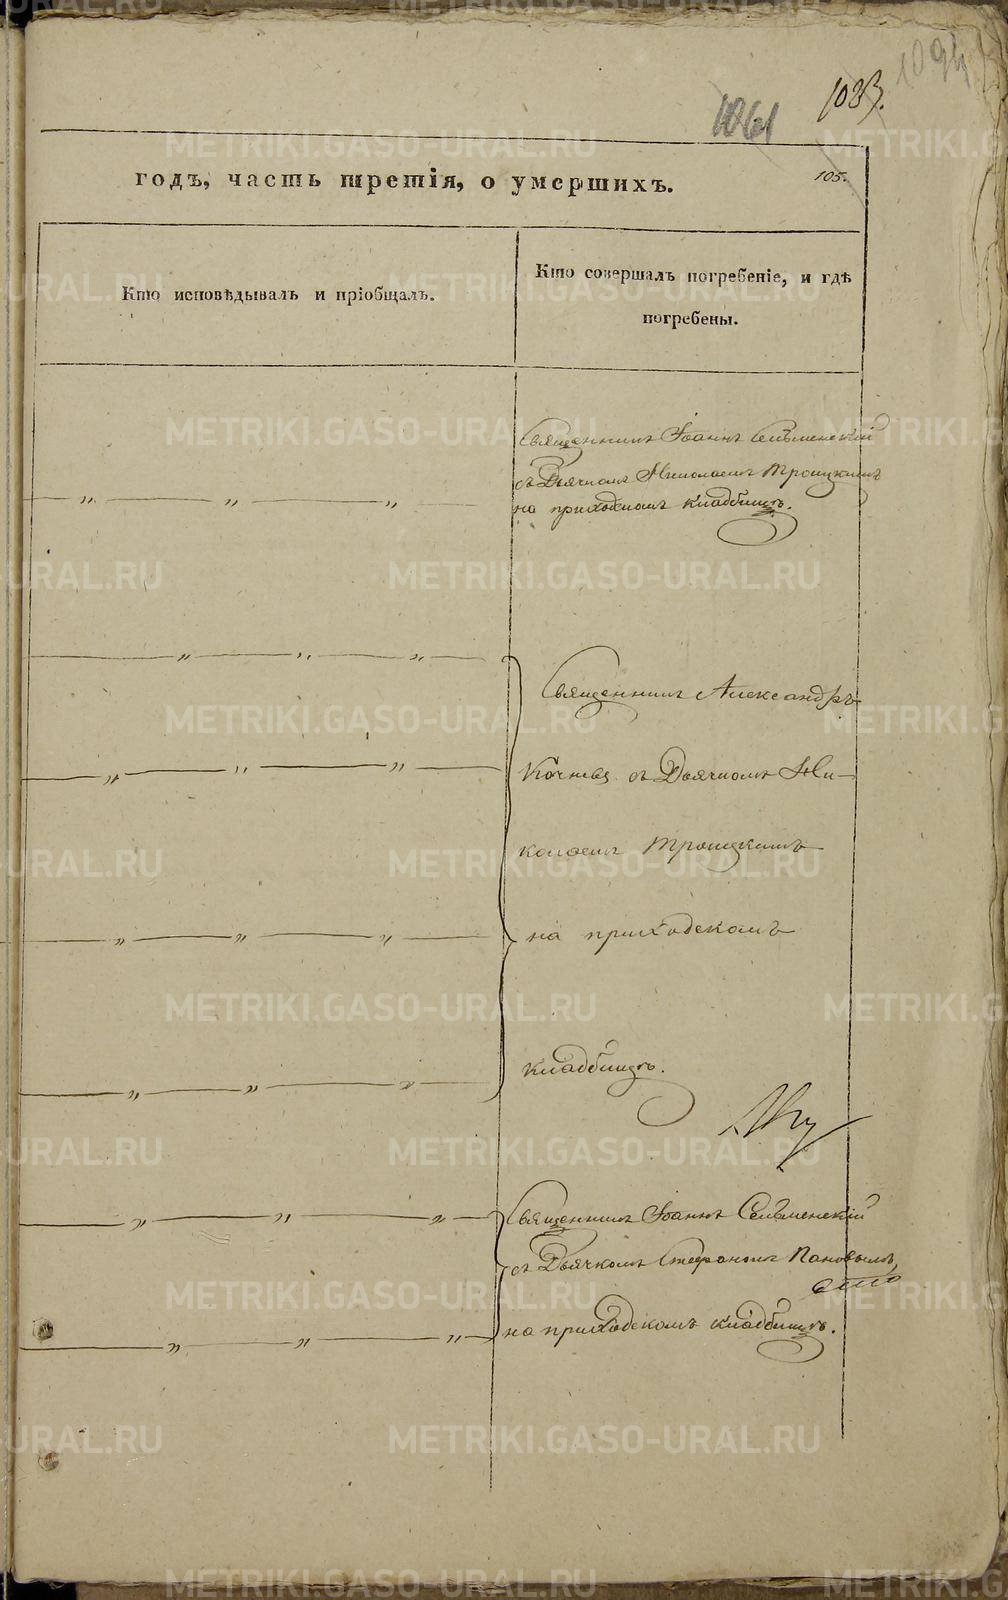 1094
1083.
1061
105.
годъ, часть третія, о умершихъ.
Кто исповѣдывалъ и пріобщалъ.
Кто совершалъ погребеніе, и гдѣ
погребены.
Священникъ Іоаннъ Селменскій
съ Дьячкомъ Николаемъ Троицкимъ
на приходскомъ кладбищѣ.
Священникъ Александръ
съ Дьячкомъ Ни-
колаемъ Троицкимъ
на приходскомъ
кладбищѣ.
Священникъ Іоаннъ Селменскій
съ Дьячкомъ Стефаномъ Пановымъ,
на приходскомъ кладбищѣ.
METRIKI.GASO-URAL.RU